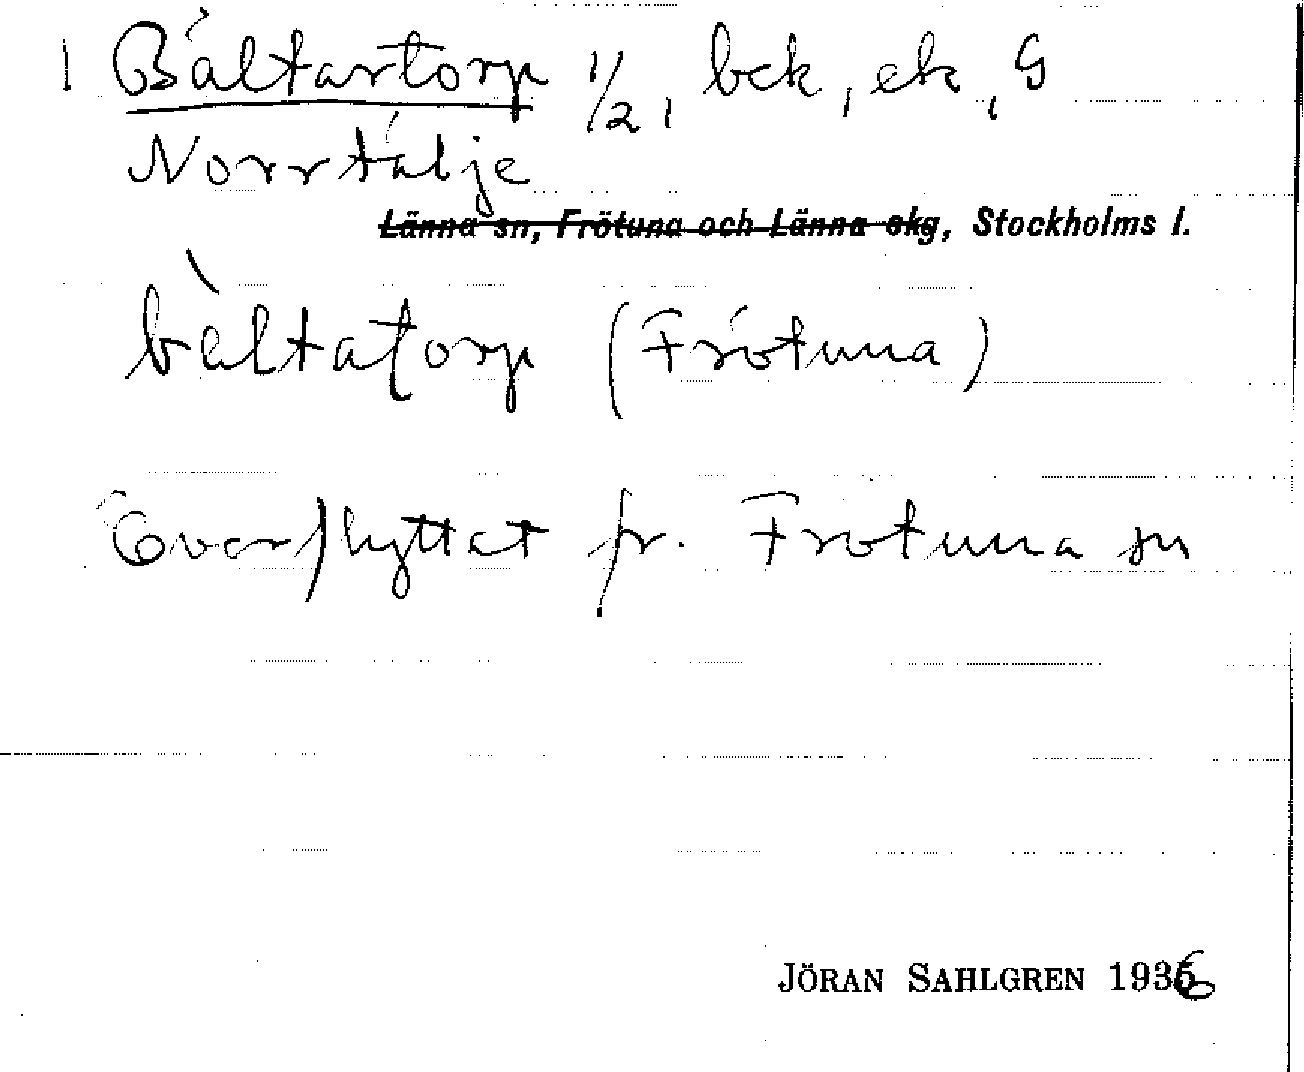 1 Bältartorp 1/2, bck, ek, G
Norrtälje
Länna sn, Frötuna och Länna skg, Stockholms l.
bèltatorp (Frötuna)
Överflyttat fr. Frötuna sn
JÖRAN SAHLGREN 1936